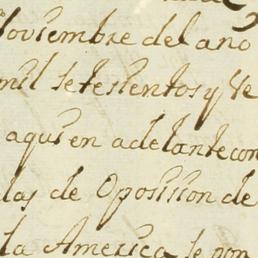 Noviembre del ano
mil setesientos y Ve
aqui en adelante con
las de Oposision de
la America se pon